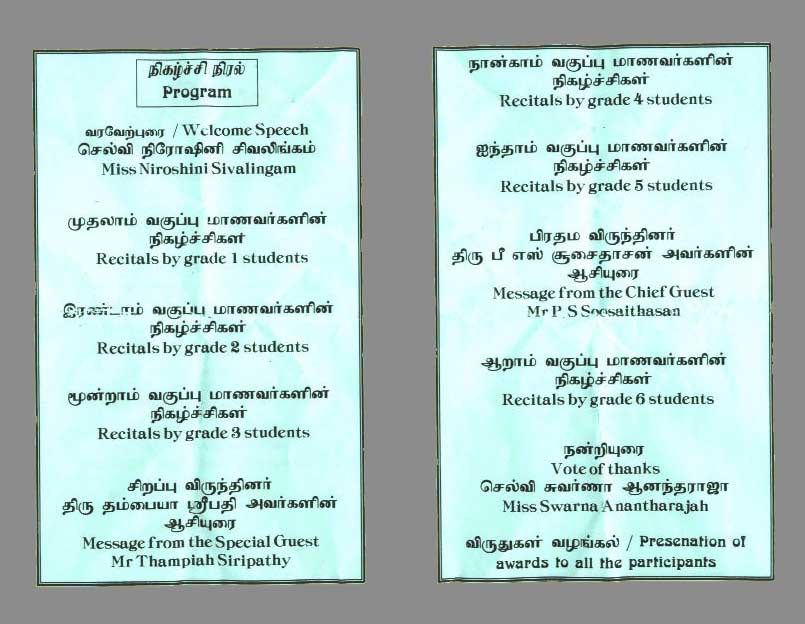 நிகழ்ச்சி நிரல்
Program
வரவேற்புரை / Welcome Speech
செல்வி நிரோஷினி சிவலிங்கம்
Miss Niroshini Sivalingam
முதலாம் வகுப்பு மாணவர்களின்
நிகழ்ச்சிகள்
Recitals by grade 1 students
இரண்டாம் வகுப்பு மாணவர்களின்
நிகழ்ச்சிகள்
Recitals by grade 2 students
மூன்றாம் வகுப்பு மாணவர்களின்
நிகழ்ச்சிகள்
Recitals by grade 3 students
சிறப்பு விருந்தினர்
திரு தம்பையா ஸ்ரீபதி அவர்களின்
ஆசியுரை
Message from the Special Guest
Mr Thampiah Siripathy
நான்காம் வகுப்பு மாணவர்களின்
நிகழ்ச்சிகள்
Recitals by grade 4 students
ஐந்தாம் வகுப்பு மாணவர்களின்
நிகழ்ச்சிகள்
Recitals by grade 5 students
பிரதம விருந்தினர்
திரு பீ எஸ் சூசைதாசன் அவர்களின்
ஆசியுரை
Message from the Chief Guest
Mr P. S Soosaithasan
ஆறாம் வகுப்பு மாணவர்களின்
நிகழ்ச்சிகள்
Recitals by grade 6 students
நன்றியுரை
Vote of thanks
செல்வி சுவர்ணா ஆனந்தராஜா
Miss Swarna Anantharajah
விருதுகள் வழங்கல் / Presenation of
awards to all the participants